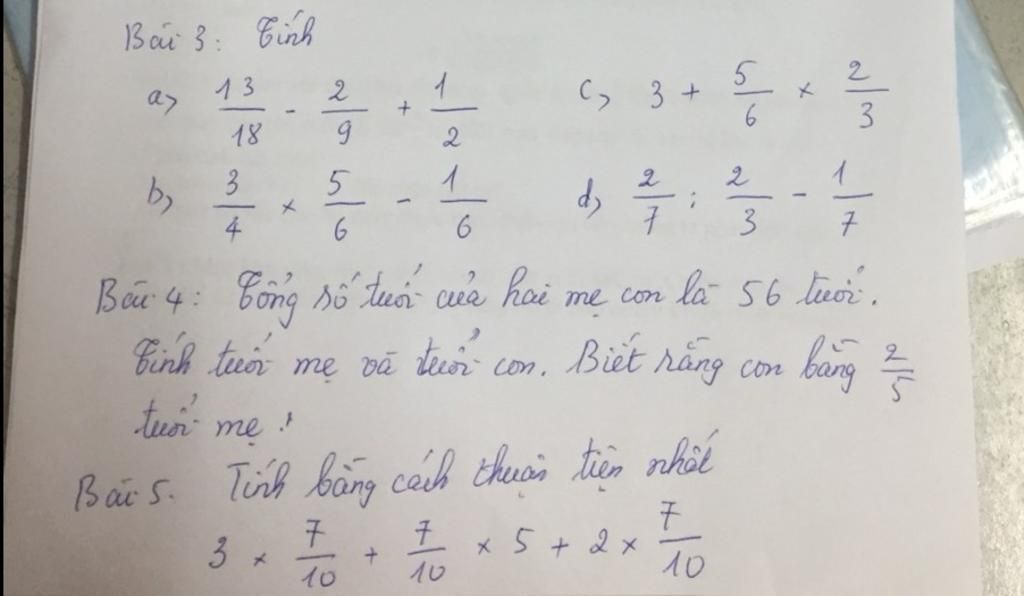 Bài 3: Tính
a) 13/18 - 2/9 + 1/2
c) 3 + 5/6 × 2/3
b) 3/4 × 5/6 - 1/6
d) 2/7 : 2/3 - 1/7
Bài 4: Tổng số tuổi của hai mẹ con là 56 tuổi.
Tính tuổi mẹ và tuổi con. Biết rằng con bằng 2/5
tuổi mẹ.
Bài 5. Tính bằng cách thuận tiện nhất
3 × 7/10 + 7/10 × 5 + 2 × 7/10